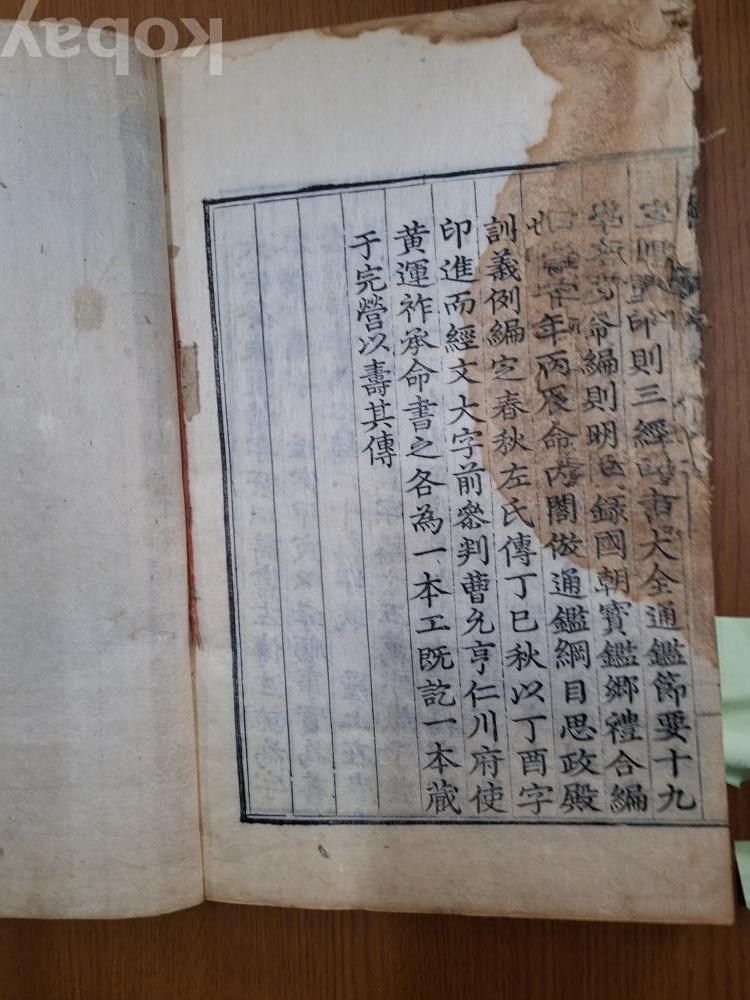 印則三經四書大全通鑑節要十九
編則明臣錄國朝寶鑑鄉禮合編
也
年丙辰命內閣倣通鑑綱目思政殿
訓義例編定春秋左氏傳丁巳秋以丁酉字
印進而經文大字前參判曹允亨仁川府使
黃運祚承命書之各為一本工既訖一本藏
于完營以壽其傳
Kobay